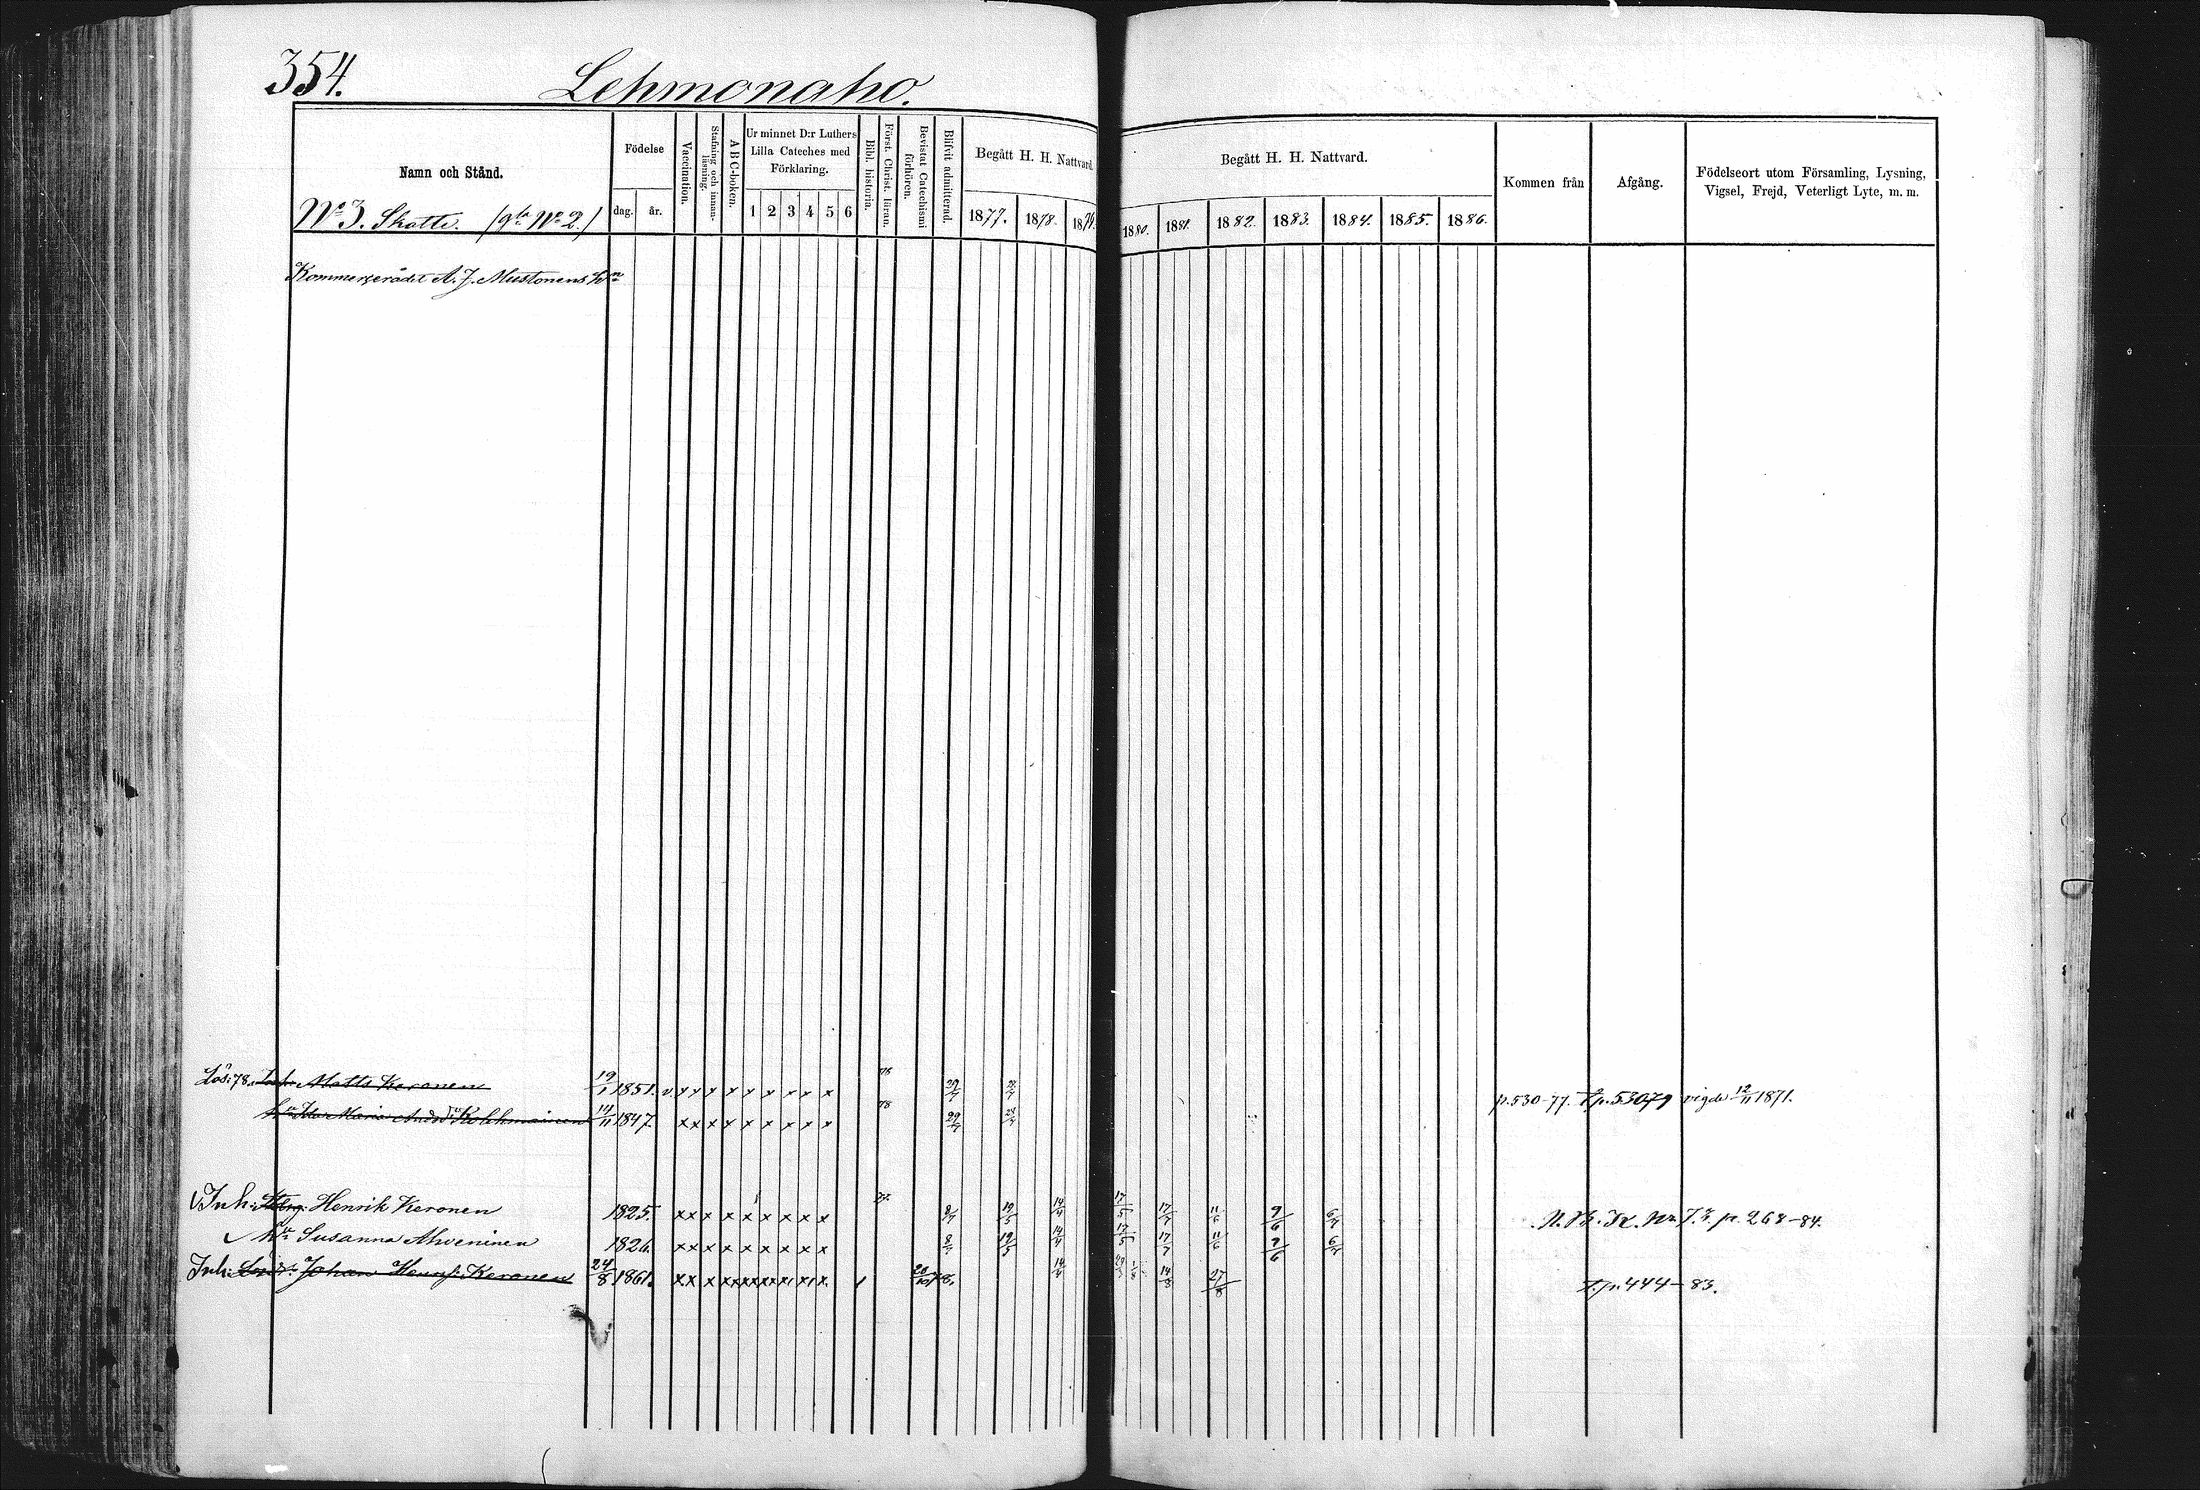 354.
Lehmonaho.
Namn och Stånd.
Födelse
dag. år.
Vaccination.
Stafning och innanläsning.
ABC-boken.
Ur minnet D:r Luthers Lilla Cateches med Förklaring.
1 2 3 4 5 6
Bibl. historia.
Först. Christ. läran.
Bevistat Catechismi förhören.
Blifvit admitterad.
Begått H. H. Nattvard.
1877. 1878. 1879.
Begått H. H. Nattvard.
1880. 1881. 1882. 1883. 1884. 1885. 1886.
Kommen från
Afgång.
Födelseort utom Församling, Lysning, Vigsel, Frejd, Veterligt Lyte, m. m.
No 3. Skatte.
Kommerserådet A. J. Mustonens
Lös: 78. Matts Keronen 19/1 1851. v. x x x x x x x x x p. 530-77. T. p. 530 79 vigde 12/11 1871.
Maria Kolehmainen 14/11 1847. x x x x x x x x x
Inh: Henrik Keronen 1825. x x x x x x x x x 19/5 14/4 17/5 17/7 11/6 9/6 6/7 p. 268-84.
Susanna Ahveninen 1826. x x x x x x x x x 19/5 14/4 17/5 17/7 11/6 9/6 6/7
Inh: Johan Henrs: Keronen 24/8 1861. 14/4 14/8 27/8 T. p. 444-83.